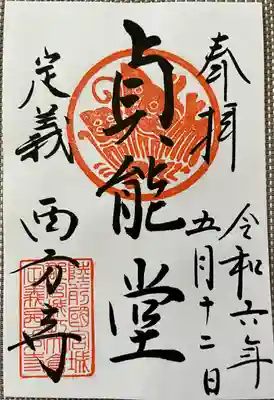 奉拝
令和六年
五月十二日
貞能堂
定義
西方寺